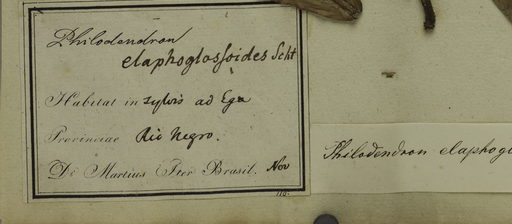 Philodendron
elaphoglossoides Scht
Habitat in sylvis ad Ega
Provinciae Rio Negro.
De Martius Iter Brasil. Nov
Philodendron elaphogl